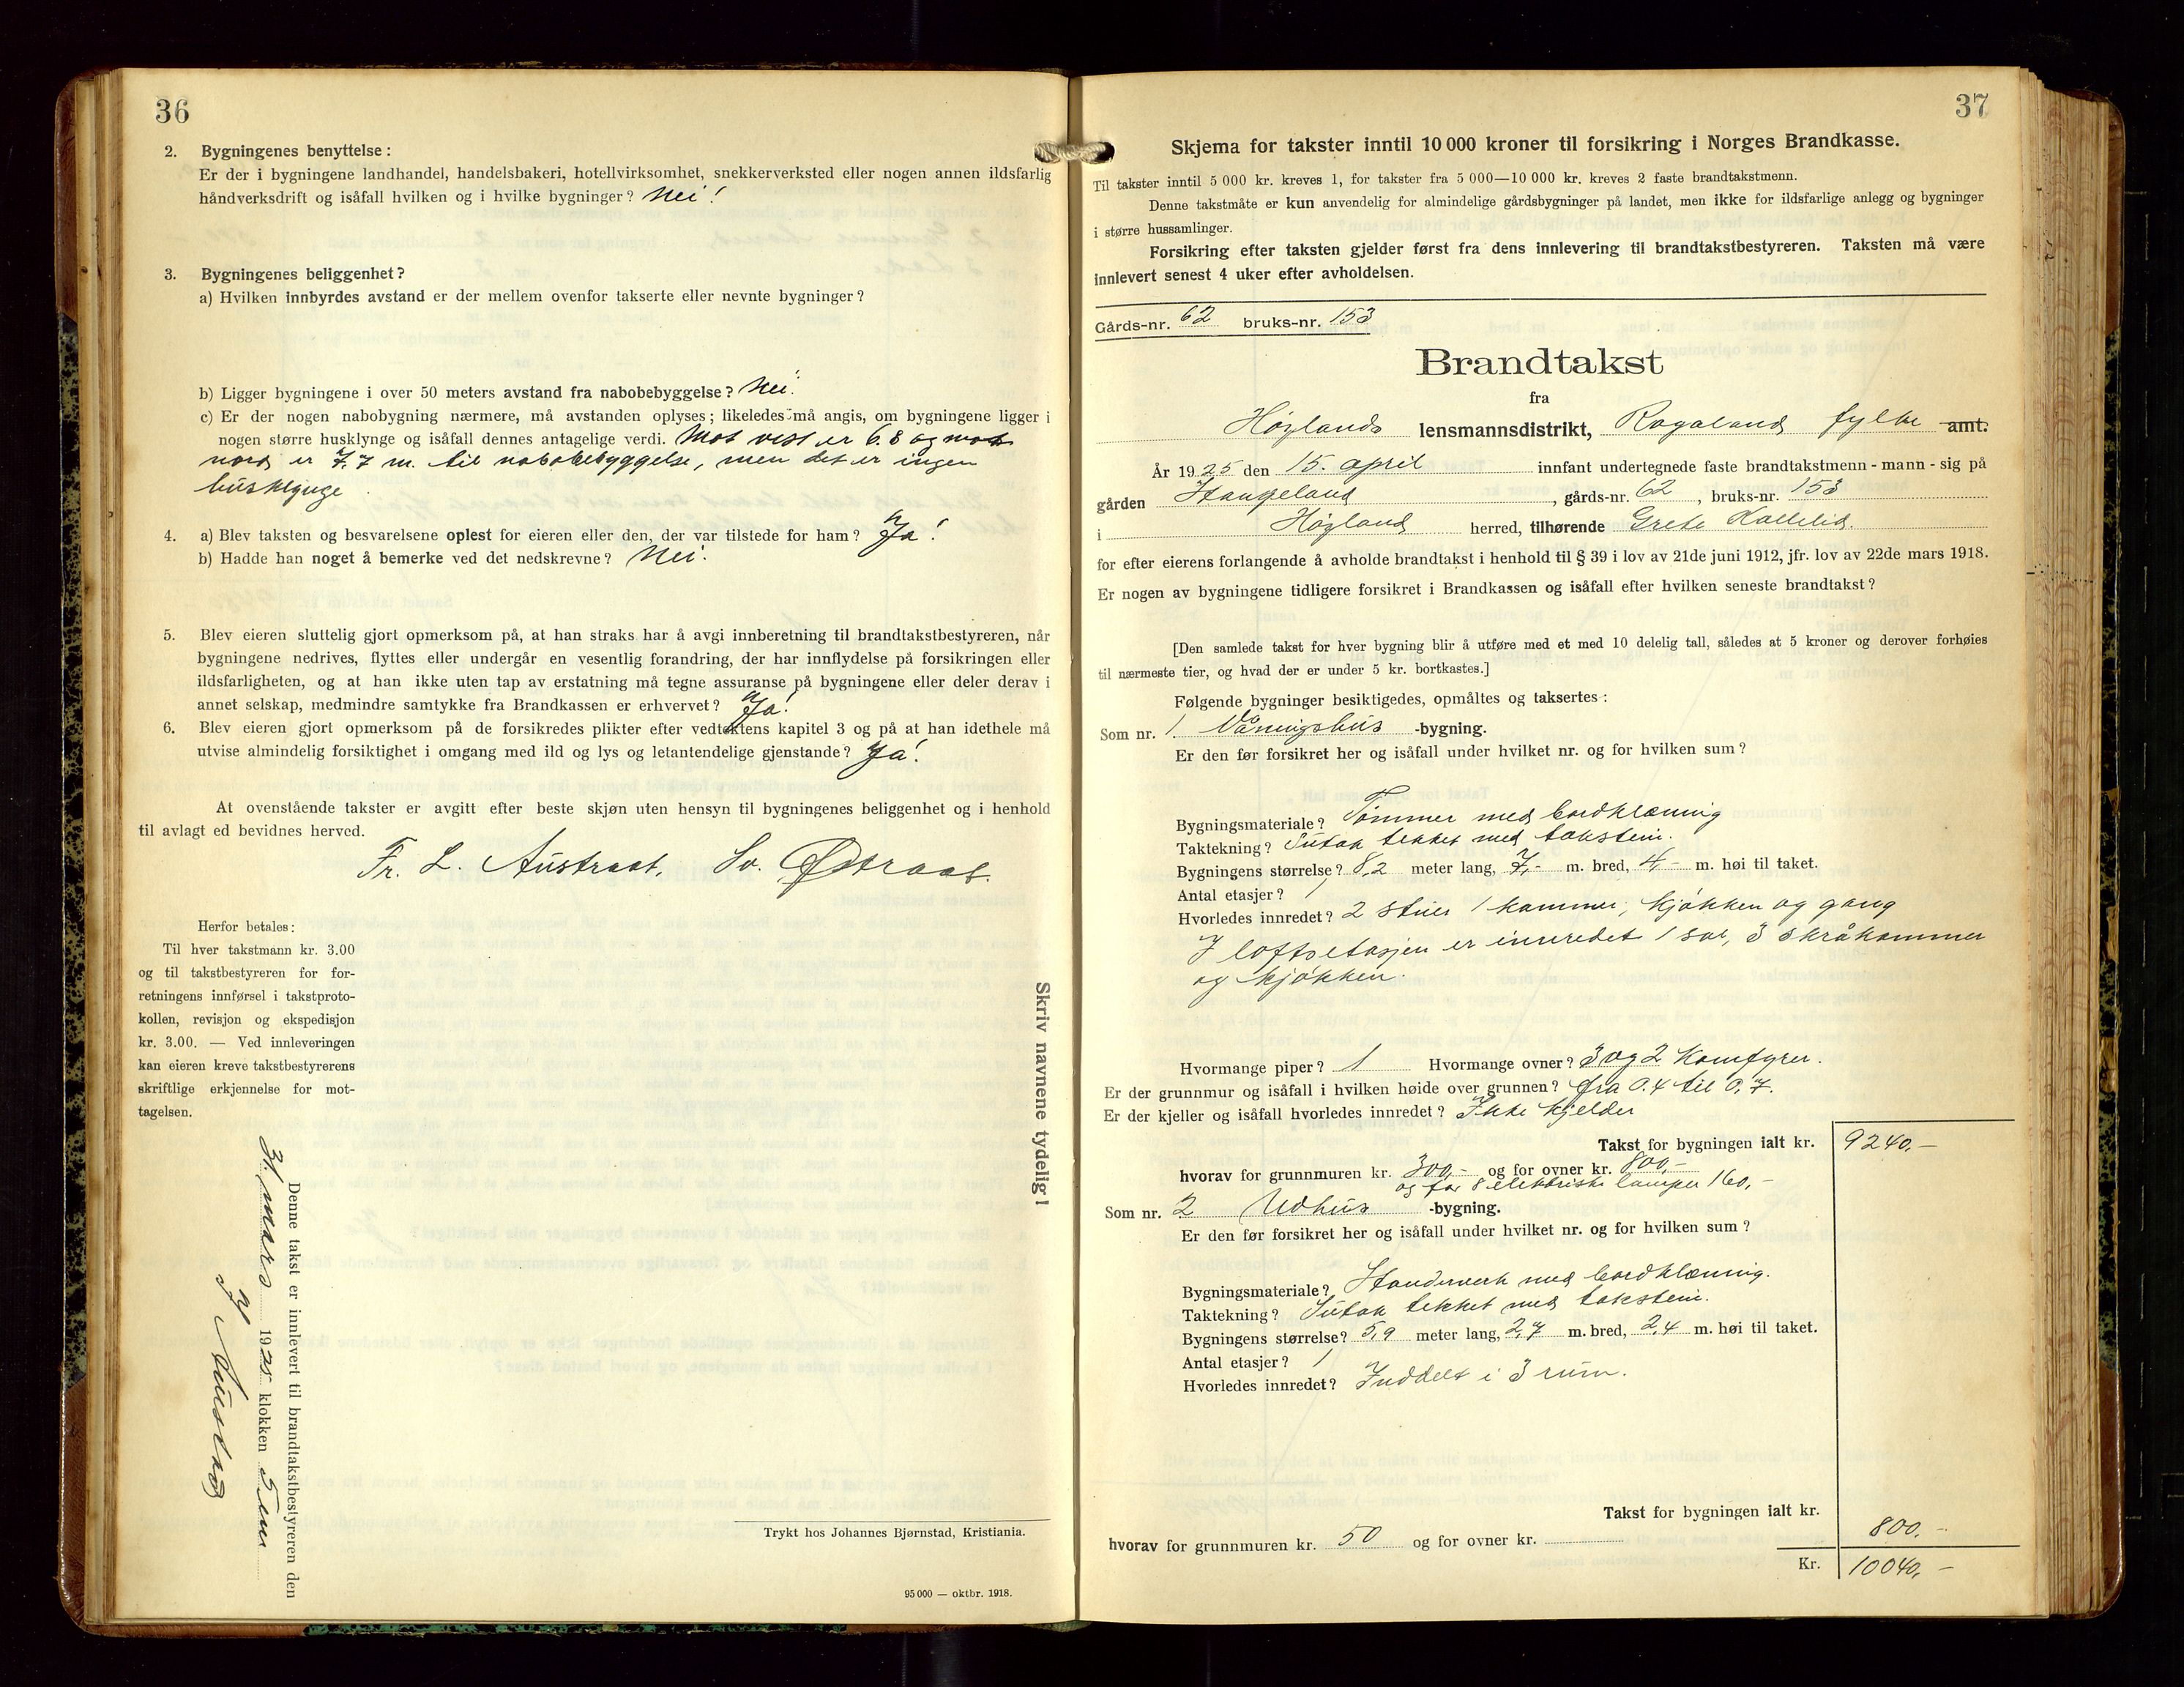 36
2. Bygningenes benyttelse:
Er der i bygningene landhandel, handelsbakeri, hotellvirksomhet, snekkerverksted eller nogen annen ildsfarlig
håndverksdrift og isåfall hvilken og i hvilke bygninger? Nei!
3. Bygningenes beliggenhet?
a) Hvilken innbyrdes avstand er der mellem ovenfor takserte eller nevnte bygninger?
b) Ligger bygningene i over 50 meters avstand fra nabobebyggelse? Nei.
c) Er der nogen nabobygning nærmere, må avstanden oplyses; likeledes må angis, om bygningene ligger i
nogen større husklynge og isåfall dennes antagelige verdi. Mot vest er 6.8 og mot
nord er 7.7 m. til nabobebyggelse, men det er ingen
husklynge.
4. a) Blev taksten og besvarelsene oplest for eieren eller den, der var tilstede for ham? Ja!
b) Hadde han noget å bemerke ved det nedskrevne? Nei.
5. Blev eieren sluttelig gjort opmerksom på, at han straks har å avgi innberetning til brandtakstbestyreren, når
bygningene nedrives, flyttes eller undergår en vesentlig forandring, der har innflydelse på forsikringen eller
ildsfarligheten, og at han ikke uten tap av erstatning må tegne assuranse på bygningene eller deler derav i
annet selskap, medmindre samtykke fra Brandkassen er erhvervet? Ja!
6. Blev eieren gjort opmerksom på de forsikredes plikter efter vedtektens kapitel 3 og på at han idethele må
utvise almindelig forsiktighet i omgang med ild og lys og letantendelige gjenstande? Ja!
At ovenstående takster er avgitt efter beste skjøn uten hensyn til bygningenes beliggenhet og i henhold
til avlagt ed bevidnes herved.
Fr. L. Austraat. Sv. Østraat.
Herfor betales:
Til hver takstmann kr. 3.00
og til takstbestyreren for for-
retningens innførsel i takstproto-
kollen, revisjon og ekspedisjon
kr. 3.00. — Ved innleveringen
kan eieren kreve takstbestyrerens
skriftlige erkjennelse for mot-
tagelsen.
Skriv navnene tydelig!
Denne takst er innlevert til brandtakstbestyreren den
31 mars 1925 klokken 5 em
Trykt hos Johannes Bjørnstad, Kristiania.
95 000 — oktbr. 1918.
37
Skjema for takster inntil 10 000 kroner til forsikring i Norges Brandkasse.
Til takster inntil 5 000 kr. kreves 1, for takster fra 5 000—10 000 kr. kreves 2 faste brandtakstmenn.
Denne takstmåte er kun anvendelig for almindelige gårdsbygninger på landet, men ikke for ildsfarlige anlegg og bygninger
i større hussamlinger.
Forsikring efter taksten gjelder først fra dens innlevering til brandtakstbestyreren. Taksten må være
innlevert senest 4 uker efter avholdelsen.
Gårds-nr. 62 bruks-nr. 153
Brandtakst
fra
Høylands lensmannsdistrikt, Rogaland fylke amt.
År 1925 den 15. april innfant undertegnede faste brandtakstmenn - mann - sig på
gården Stangeland, gårds-nr. 62, bruks-nr. 153
i Høyland herred, tilhørende Grete Kallelid.
for efter eierens forlangende å avholde brandtakst i henhold til § 39 i lov av 21de juni 1912, jfr. lov av 22de mars 1918.
Er nogen av bygningene tidligere forsikret i Brandkassen og isåfall efter hvilken seneste brandtakst?
[Den samlede takst for hver bygning blir å utføre med et med 10 delelig tall, således at 5 kroner og derover forhøies
til nærmeste tier, og hvad der er under 5 kr. bortkastes.]
Følgende bygninger besiktigedes, opmåltes og taksertes:
Som nr. 1. Våningshus -bygning.
Er den før forsikret her og isåfall under hvilket nr. og for hvilken sum?
Bygningsmateriale? Tømmer med bordklæning
Taktekning? Sutak tekket med takstein.
Bygningens størrelse? 8,2 meter lang, 7,- m. bred, 4,- m. høi til taket.
Antal etasjer? 1
Hvorledes innredet? 2 stuer 1 kammer, kjøkken og gang
I loftsetasjen er innredet 1 sal, 3 skråkammer
og kjøkken.
Hvormange piper? 1 Hvormange ovner? 3 og 2 Komfyrer.
Er der grunnmur og isåfall i hvilken høide over grunnen? fra 0.4 til 0,7.
Er der kjeller og isåfall hvorledes innredet? Ikke kjelder
Takst for bygningen ialt kr. 9240,-
hvorav for grunnmuren kr. 300,- og for ovner kr. 800,-
og for 8 elektriske lamper 160,-
Som nr. 2 Udhus -bygning.
Er den før forsikret her og isåfall under hvilket nr. og for hvilken sum?
Bygningsmateriale? Standerverk med bordklæning.
Taktekning? Sutak tekket med takstein.
Bygningens størrelse? 5,9 meter lang, 2,7 m. bred, 2,4 m. høi til taket.
Antal etasjer? 1
Hvorledes innredet? Inddelt i 3 rum.
Takst for bygningen ialt kr. 800.-
hvorav for grunnmuren kr. 50 og for ovner kr.
Kr. 10040,-